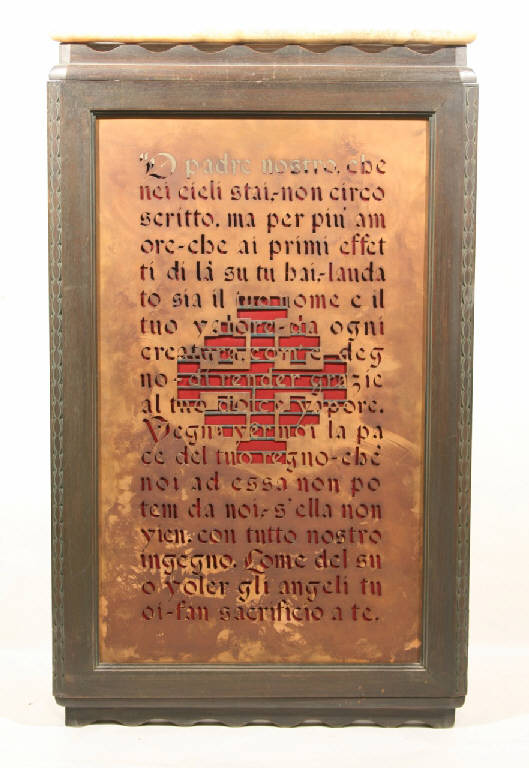 "O padre nostro, che
nei cieli stai,-non circo
scritto, ma per piu' am
ore-che ai primi effet
ti di là su tu hai,-lauda
to sia il tuo nome e il
tuo valore-da ogni
creatura, com'è deg
no-di render grazie
al tuo dolce vapore.
Vegna ver noi la pa
ce del tuo regno-chè
noi ad essa non po
tem da noi,-s'ella non
vien, con tutto nostro
ingegno. Come del su
o voler gli angeli tu
oi-fan sacrificio a te.